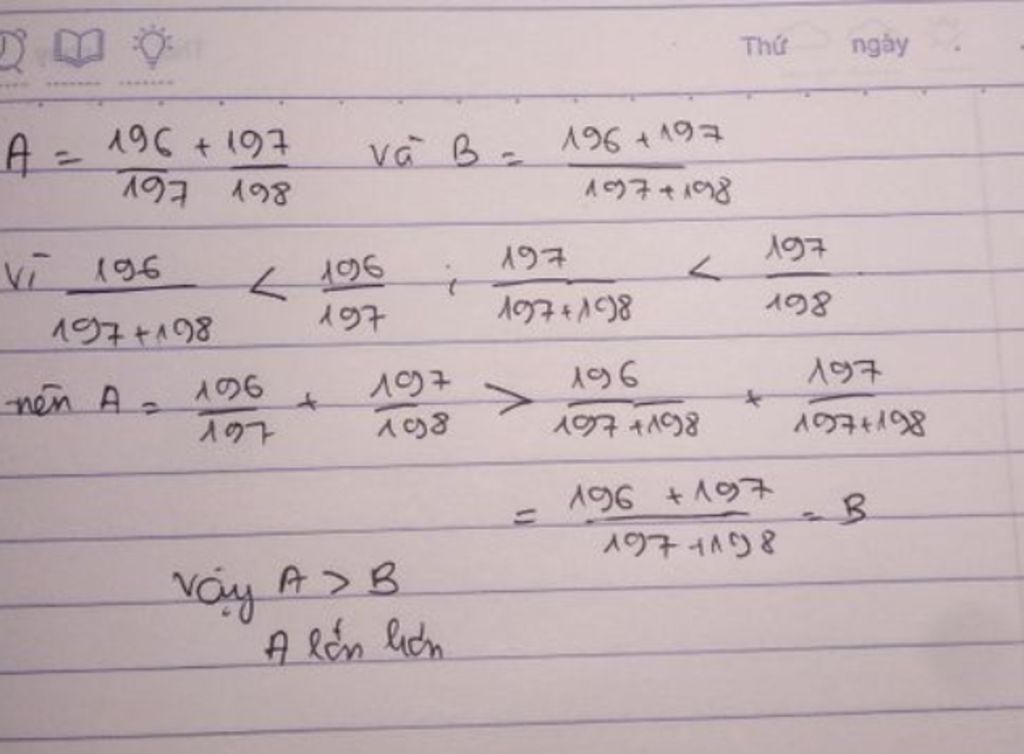 Thứ ngày
A = 196/197 + 197/198 và B = (196 + 197)/(197 + 198)
Vì 196/(197 + 198) < 196/197 ; 197/(197 + 198) < 197/198
nên A = 196/197 + 197/198 > 196/(197 + 198) + 197/(197 + 198)
= (196 + 197)/(197 + 198) = B
Vậy A > B
A lớn hơn